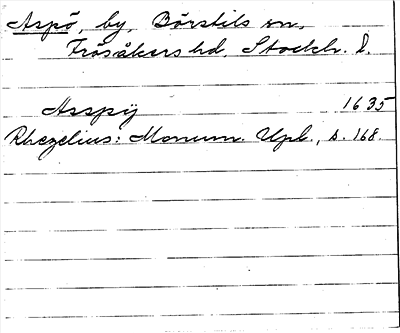 Aspö, by, Börstils sn,
Frösåkers hd, Stockh. l.
Asspÿ 1635
Rhezelius: Monum. Upl., s. 168.